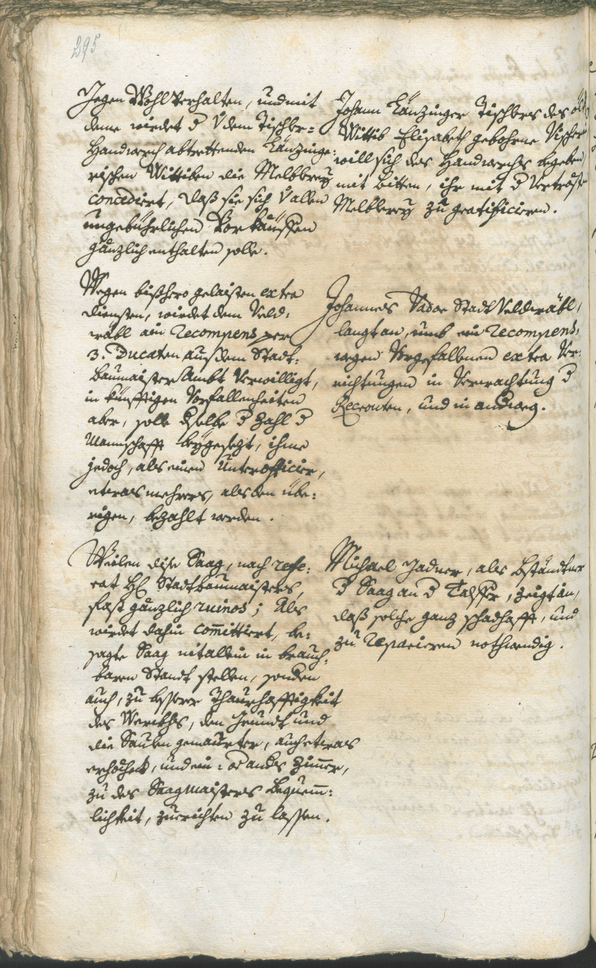 295
Gegen Wohl verhalten, und mit
deme wirdet d Vdem Tischler=
Handwerch abtrettenden Känzinge=
rischen Wittiben die Melbbrey
concedirt, daß sie sich Vallen
ungebührlichen Vorkauffen
gänzlich enthalten solle.
Johann Känzinger Tischlers des
Wittib Elisabeth gebohrne
will sich des Handwerchs begeben
mit bitten, ihr mit d
Melbbrey zu gratificieren.
Wegen bißhero gelaisten extra
diensten, wirdet dem Veld=
wäbl ain Recompens per
3. Ducaten außem Statt=
baumaister Ambt verwilliget,
in künfftigen Vorfallenheiten
aber, solle Selbe d Zahl d
Mannschafft beygesezt, ihme
jedoch, als einen Unterofficier,
etwas mehrers, als den übe=
rigen, bezahlt werden.
Johannes Stadt Veldwäbl,
langt an, umb ein Recompens,
wegen Vorgefallenen extra Ver=
richtungen in Verwachtung d
Recrouten, und in anderweg.
Weilen dise Saag, nach refe=
rat H: Stadtbaumaisters,
fast gänzlich ruinos; Als
wirdet dahin com̄ittiert, be=
sagte Saag nit allein in brauch=
baren Standt stellen, sonden
auch, zu besserer Thaurhafftigkeit
des Werchs, den Grundt und
die Saulen gemaurter, auch etwas
erhöhet, und ein: od andes Zimer,
zu des Saagmaisters bequem=
lichkeit, zurichten zu lassen.
Michael Jadner, als bständtner
d Saag an d Talfer, zeigt an,
daß solche ganz schadhafft, und
zu reparieren nothwendig.